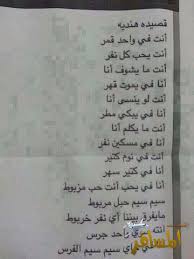 قصيده هنديه
أنت في واحد قمر
أنت يحب كل نفر
أنت ما يشوف أنا
أنا في يموت قهر
أنت لو ينسى أنا
أنا في يبكي مطر
أنت ما يكلم أنا
أنا في مسكين نفر
أنت في نوم كثير
أنا في كثير سهر
أنا في يحب أنت حب مربوط
سيم سيم حبل مربوط
مايفرق بيننا أي نفر خربوط
أنت يجري واحد جرس
سيم سيم الفرس
المسافر